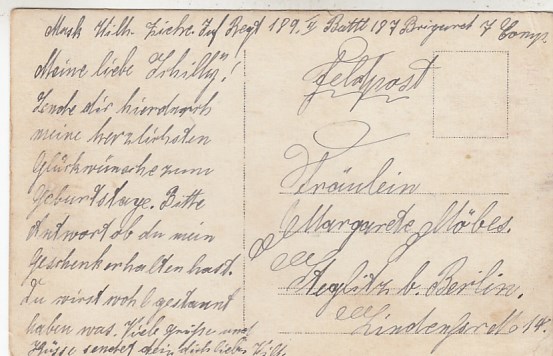 Musk Wilh. Ziche. Inf Regt 189. II Battl 187 Brigaret 7 Comp.
Meine liebe Schilly"!
Sende dir hierdurch
meine herzlichsten
Glückwünsche zum
Geburtstage. Bitte
Antwort ob du mein
Geschenk erhalten hast.
Du wirst wohl gestaunt
haben was. Viele Grüße und
Küsse sendet dein dich lieb. Wilh.
Feldpost
Fräulein
Margarete Möbes.
Steglitz b. Berlin.
14.